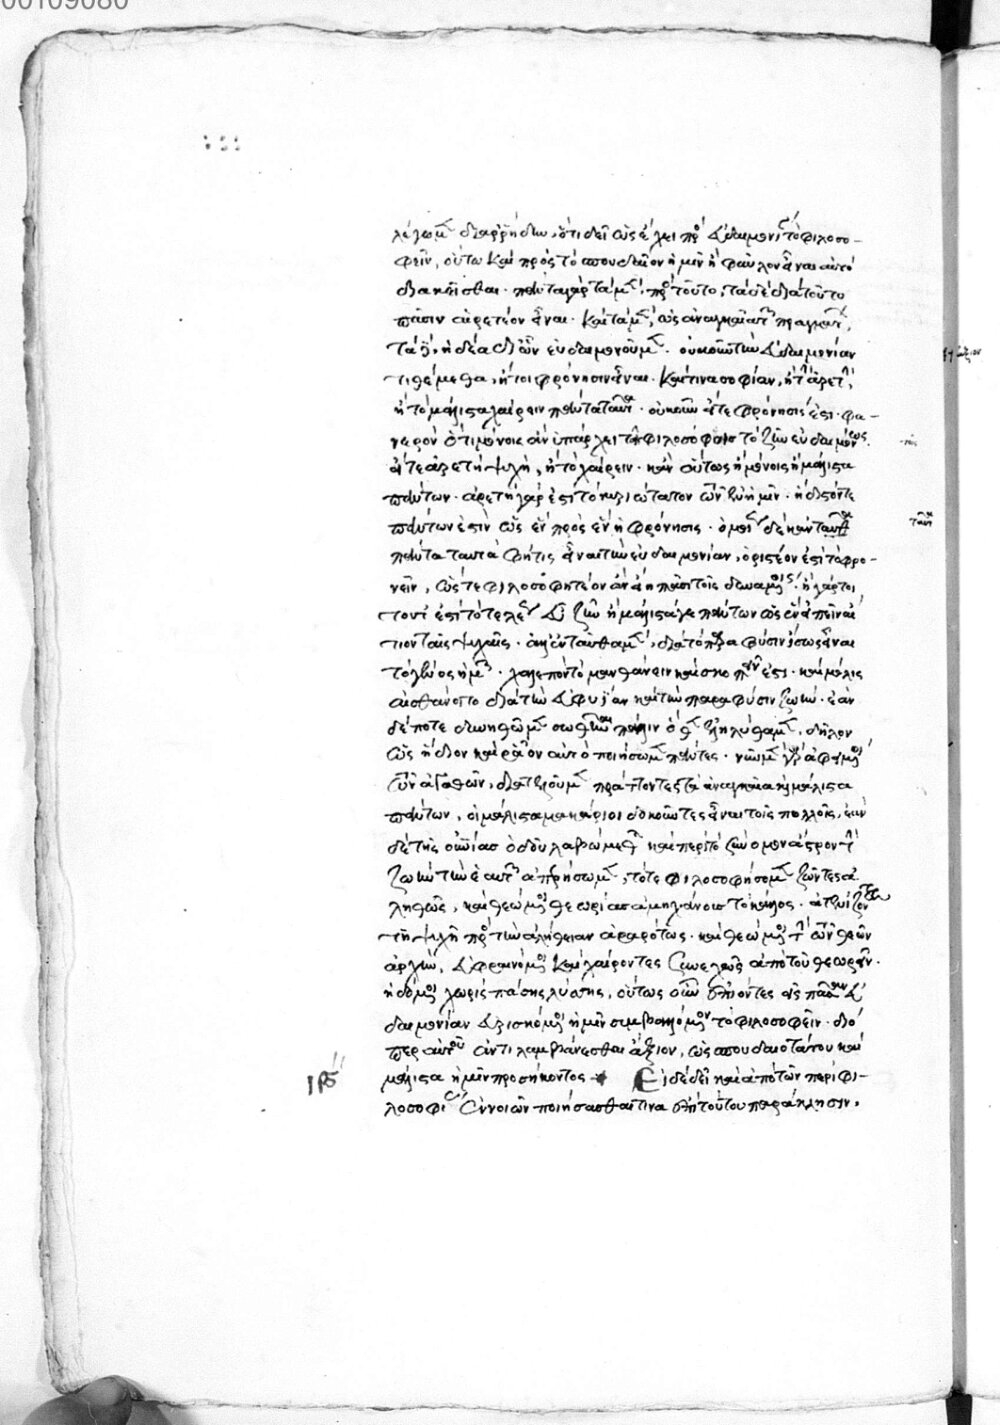 00109080
λέγωμεν διαρρήδην, ὅτι δεῖ ὡς ἔχει πρὸς εὐδαιμονίαν τὸ φιλοσο-
φεῖν, οὕτω καὶ πρὸς τὸ σπουδαῖον ἡμῖν ἢ φαῦλον εἶναι αὐτὸ
διακεῖσθαι. πάντα γὰρ τὰ μὲν πρὸς τοῦτο, τὰ δὲ διὰ τοῦτο
πᾶσιν αἱρετέον εἶναι. καὶ τὰ μὲν ὡς ἀναγκαῖα τῶν πραγμάτων,
τὰ δὲ ἡδέα δι' ὧν εὐδαιμονοῦμεν. οὐκοῦν τὴν εὐδαιμονίαν
τιθέμεθα, ἤτοι φρόνησιν εἶναι. καί τινα σοφίαν, ἢ τὴν ἀρετὴν,
ἢ τὸ μάλιστα χαίρειν ἢ πάντα ταῦτα. οὐκοῦν εἴτε φρόνησίς ἐστι. φα-
νερὸν ὅτι μόνοις ἂν ὑπάρχει τοῖς φιλοσόφοις τὸ ζῆν εὐδαιμόνως.
εἴτε ἀρετὴ ψυχῆς, ἢ τὸ χαίρειν. κἂν οὕτως ἢ μόνοις ἢ μάλιστα
πάντων. ἀρετὴ γάρ ἐστι τὸ κυριώτατον τῶν ἐν ἡμῖν. ἥδιστόν τε
πάντων ἐστὶν ὡς ἓν πρὸς ἓν ἡ φρόνησις. ὁμοίως δὲ κἂν ταῦτα
πάντα ταυτὰ φῇ τις εἶναι τὴν εὐδαιμονίαν, ὁριστέον ἐστὶ τὸ φρο-
νεῖν, ὥστε φιλοσοφητέον ἂν εἴη πᾶσι τοῖς δυναμένοις. ἢ γάρ τοι
τοῦτ' ἐστὶ τὸ τελέως εὖ ζῆν ἢ μάλιστά γε πάντων ὡς ἓν εἰπεῖν αἴ-
τιον ταῖς ψυχαῖς. ἀλλ' ἐνταῦθα μὲν, διὰ τὸ παρὰ φύσιν ἴσως εἶναι
τὸ γένος ἡμῶν. χαλεπὸν τὸ μανθάνειν καὶ σκοπεῖν ἐστι. καὶ μόλις
αἰσθάνοιτο διὰ τὴν ἀφυΐαν καὶ τὴν παρὰ φύσιν ζωήν. ἐὰν
δέ ποτε δυνηθῶμεν σωθῆναι πάλιν ὅθεν ἐληλύθαμεν, δῆλον
ὡς ἥδιον καὶ ῥᾷον αὐτὸ ποιήσωμεν πάντες. νῦν μὲν γὰρ ἀφέμενοι
τῶν ἀγαθῶν, διατελοῦμεν πράττοντες τὰ ἀναγκαῖα καὶ μάλιστα
πάντων, οἱ μάλιστα μακάριοι δοκοῦντες εἶναι τοῖς πολλοῖς, ἐὰν
δὲ τῆς οὐρανίας ὁδοῦ λαβώμεθα καὶ ἐπὶ τὸ σύννομον ἄστρον τὴν
ζωὴν τὴν ἑαυτῶν ἀπερείσωμεν, τότε φιλοσοφήσομεν ζῶντες ἀ-
ληθῶς, καὶ θεώμενοι θεωρίας ἀμηχάνους τὸ κάλλος. ἀτενίζοντες
τῇ ψυχῇ πρὸς τὴν ἀλήθειαν ἀραρότως. καὶ θεώμενοι τὴν τῶν θεῶν
ἀρχὴν, εὐφραινόμενοι καὶ χαίροντες συνεχῶς ἀπὸ τοῦ θεωρεῖν.
ἡδόμενοι χωρὶς πάσης λύπης, οὕτως οὖν ἐπιόντες εἰς πᾶσαν εὐ-
δαιμονίαν εὑρίσκομεν ἡμῖν συμβαλλόμενον τὸ φιλοσοφεῖν. διό-
περ αὐτοῦ ἀντιλαμβάνεσθαι ἄξιον, ὡς σπουδαιοτάτου καὶ
μάλιστα ἡμῖν προσήκοντος Εἰ δὲ δεῖ καὶ ἀπὸ τῶν περὶ φι-
λοσοφίας ἐννοιῶν ποιήσασθαί τινα ἐπὶ τούτου παράκλησιν,